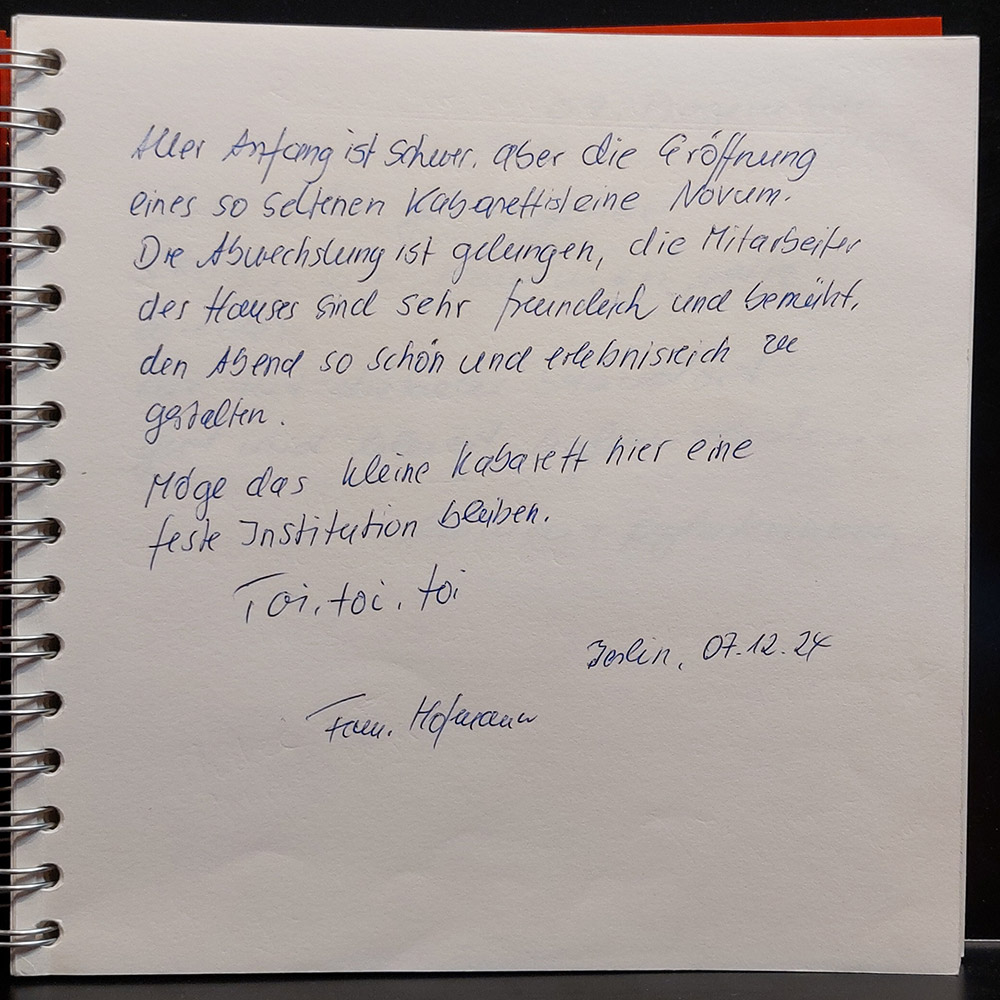 Aller Anfang ist schwer, aber die Eröffnung
eines so seltenen Kabarett ist eine Novum.
Die Abwechslung ist gelungen, die Mitarbeiter
des Hauses sind sehr freundlich und bemüht,
den Abend so schön und erlebnisreich zu
gestalten.
Möge das kleine Kabarett hier eine
feste Institution bleiben.
Toi, toi, toi
Berlin, 07.12.24
Fam. Hofmann